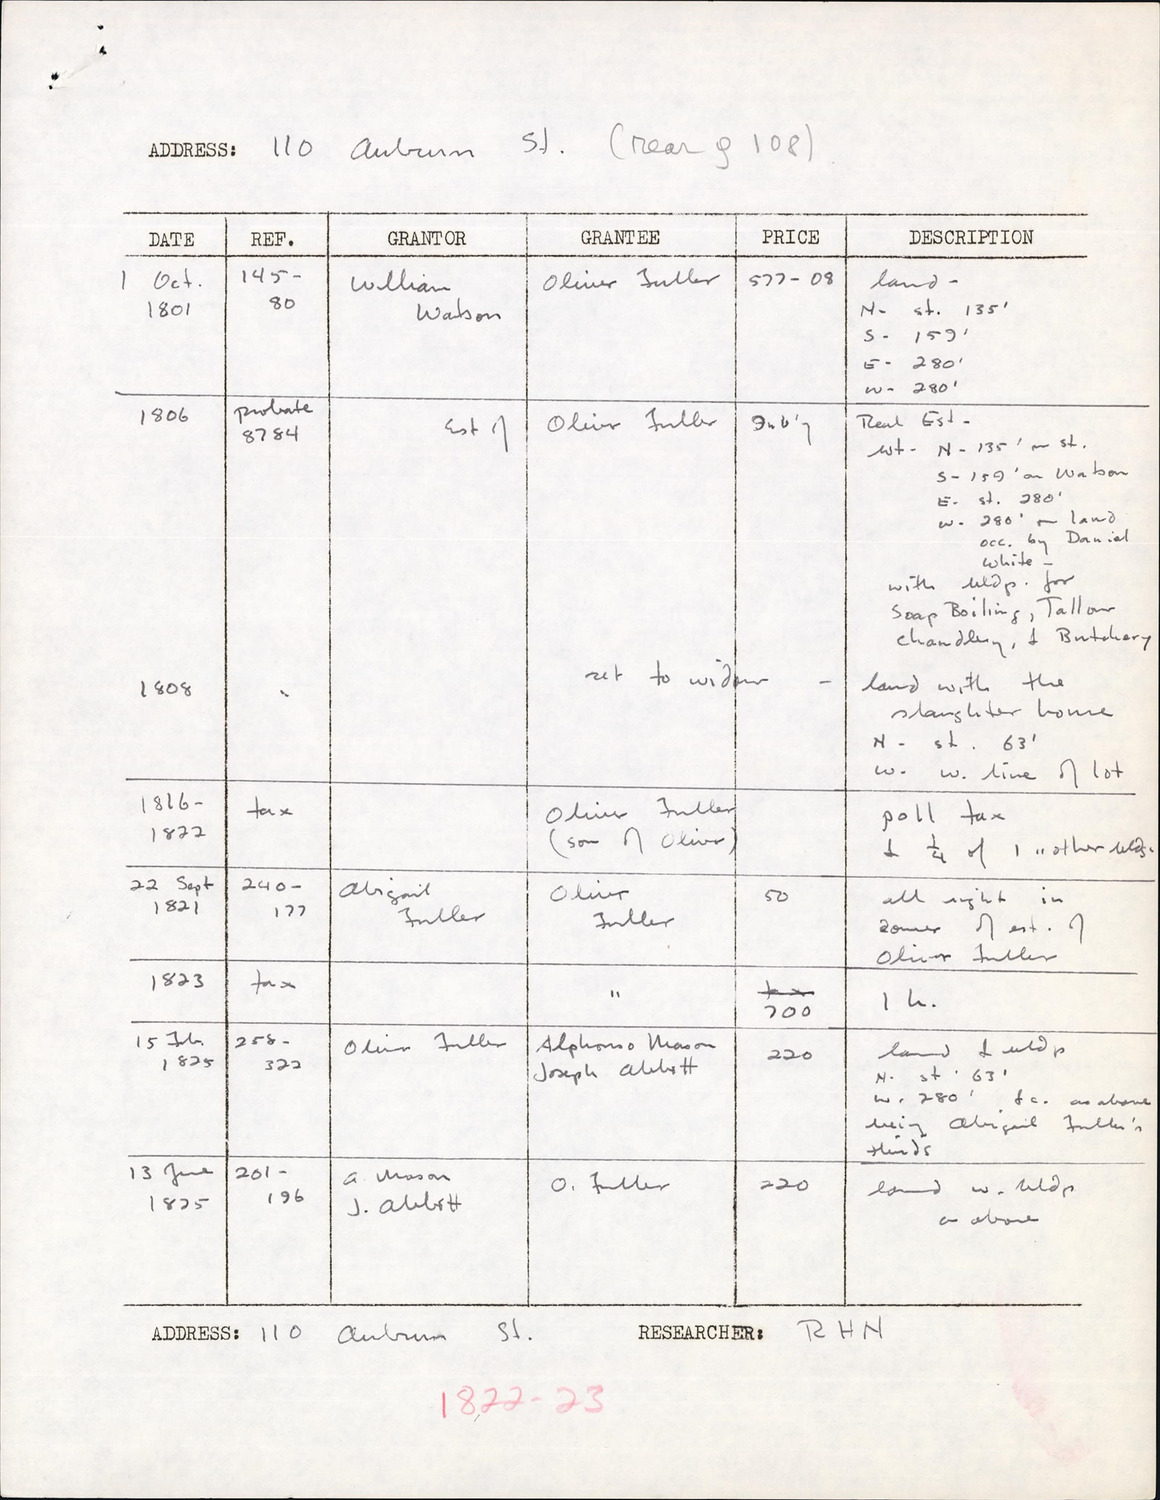 ADDRESS: 110 Auburn St. (rear of 108)
DATE REF. GRANTOR GRANTEE PRICE DESCRIPTION
1 Oct. 1801 145-80 William Watson Oliver Fuller 577-08 land -
N- st. 135'
S- 159'
E- 280'
W- 280'
1806 probate 8784 Est of Oliver Fuller Inb'y Real Est -
wt- N- 135' on st.
S- 159' on Watson
E- st. 280'
W- 280' on land
occ. by Daniel
White -
with bldgs. for
Soap Boiling, Tallow
Chandlery, & Butchery
1808 " set to widow - land with the
slaughter house
N- st. 63'
W- W. line of lot
1816-1822 tax Oliver Fuller (son of Oliver) poll tax
& ¼ of 1 "other bldg.
22 Sept 1821 240-177 Abigail Fuller Oliver Fuller 50 all right in
dower of est. of
Oliver Fuller
1823 tax " tax 700 1 h.
15 Feb. 1825 258-322 Oliver Fuller Alphonso Mason Joseph Abbott 220 land & bldgs
N- st. 63'
W. 280' &c. as above
being Abigail Fuller's
thirds
13 June 1825 201-196 A. Mason J. Abbott O. Fuller 220 land w. bldgs
as above
ADDRESS: 110 Auburn St. RESEARCHER: RHN
1822-23